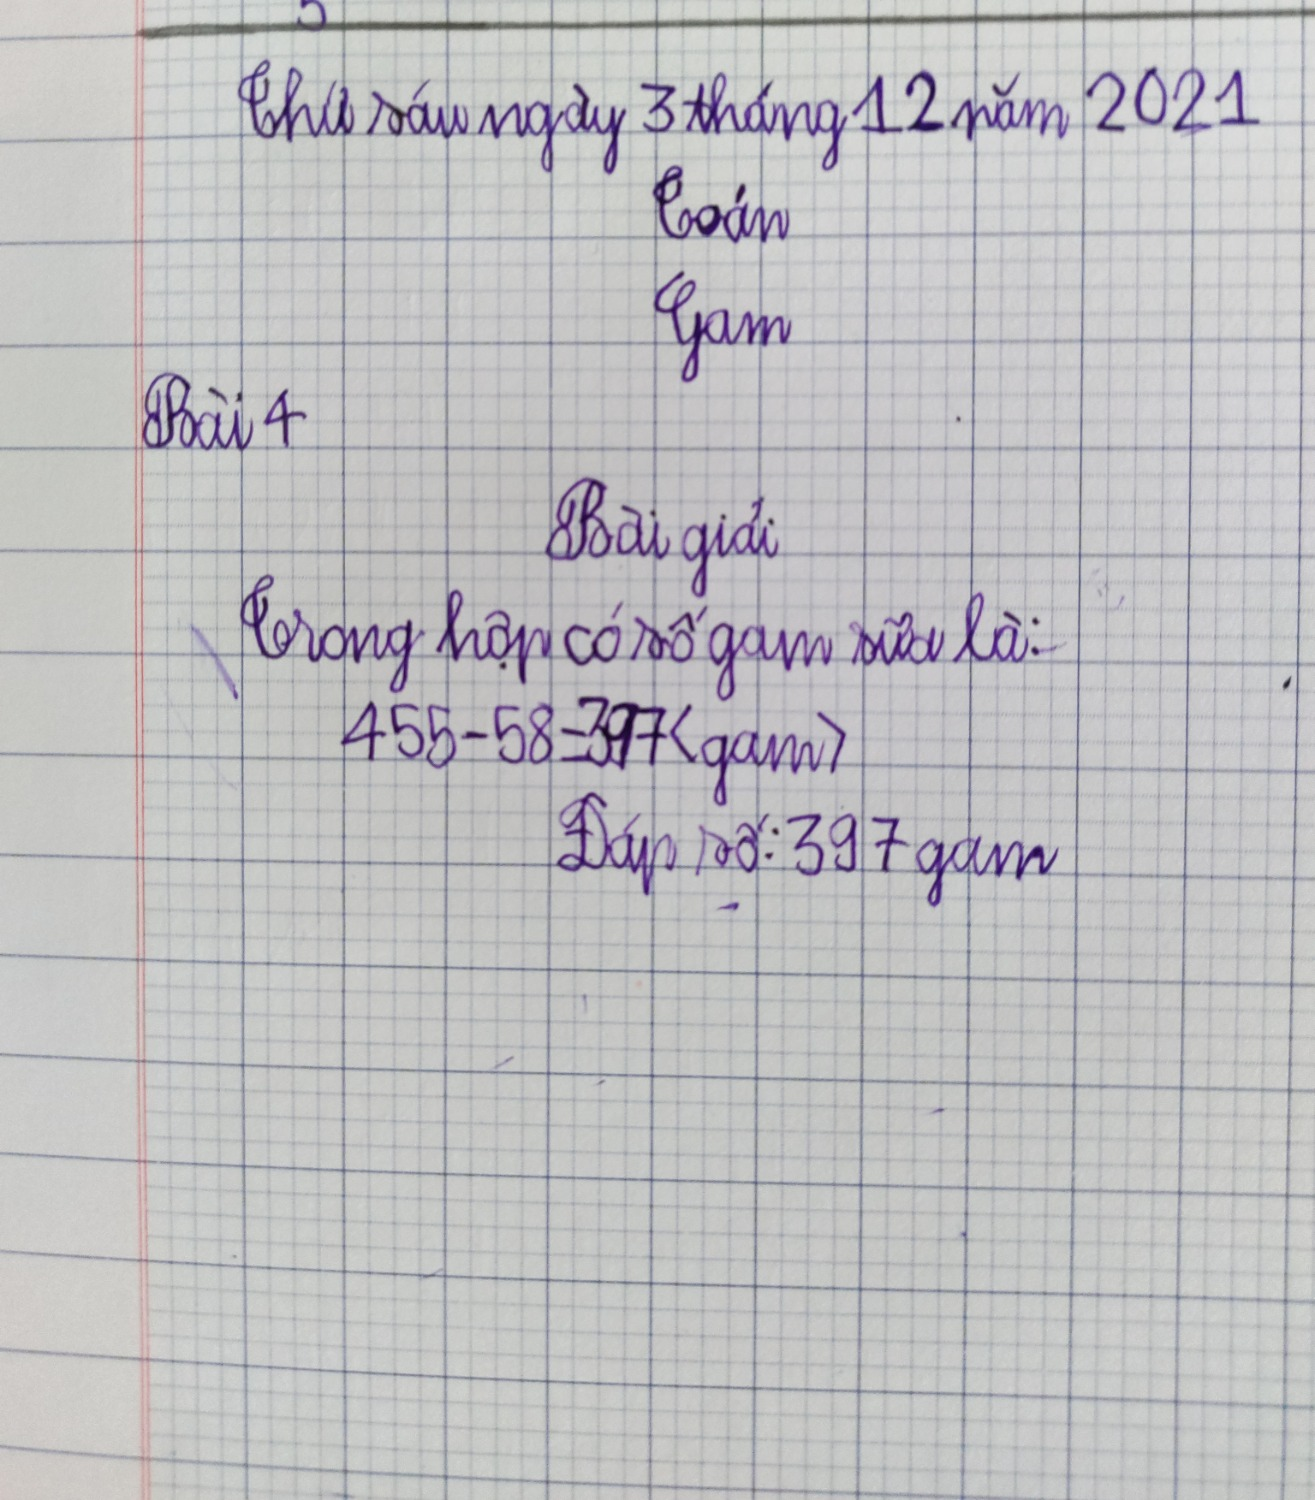 Thứ sáu ngày 3 tháng 12 năm 2021
Toán
Gam
Bài 4
Bài giải
Trong hộp có số gam sữa là:
455-58=397<gam>
Đáp số: 397 gam